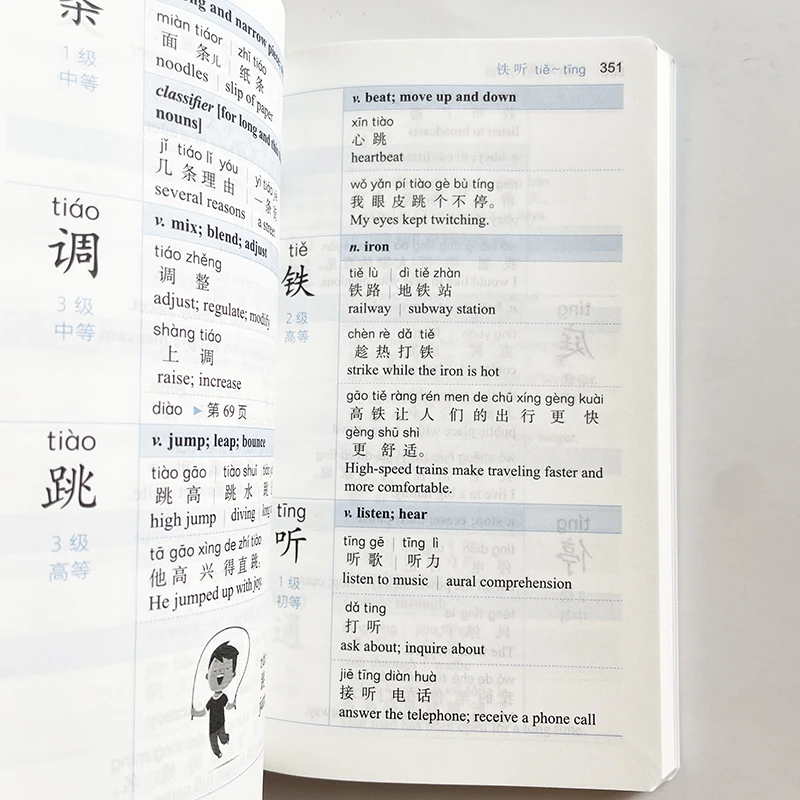 条
1 级
中等
long and narrow
miàn tiáor | zhǐ tiáo
面 条儿 | 纸 条
noodles | slip of paper
classifier [for long and thin
nouns]
jǐ tiáo lǐ yóu
几 条 理 由 | 一 条
several reasons | a street
tiáo
调
3 级
中等
v. mix; blend; adjust
tiáo zhěng
调 整
adjust; regulate; modify
shàng tiáo
上 调
raise; increase
diào ▶ 第 69 页
tiào
跳
3 级
高等
v. jump; leap; bounce
tiào gāo | tiào shuǐ
跳 高 | 跳 水
high jump | diving
tā gāo xìng de zhí tiào
他 高 兴 得 直 跳。
He jumped up with joy.
铁 听 tiě～tīng 351
v. beat; move up and down
xīn tiào
心 跳
heartbeat
wǒ yǎn pí tiào gè bù tíng
我 眼 皮 跳 个 不 停。
My eyes kept twitching.
tiě
铁
2 级
高等
n. iron
tiě lù | dì tiě zhàn
铁 路 | 地 铁 站
railway | subway station
chèn rè dǎ tiě
趁 热 打 铁
strike while the iron is hot
gāo tiě ràng rén men de chū xíng gèng kuài
高 铁 让 人 们 的 出 行 更 快
gèng shū shì
更 舒 适。
High-speed trains make traveling faster and
more comfortable.
tīng
听
1 级
初等
v. listen; hear
tīng gē | tīng lì
听 歌 | 听 力
listen to music | aural comprehension
dǎ ting
打 听
ask about; inquire about
jiē tīng diàn huà
接 听 电 话
answer the telephone; receive a phone call